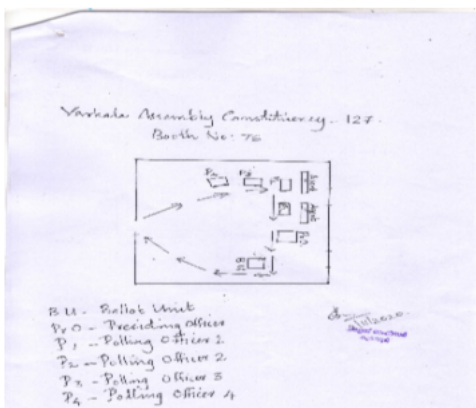 Varkala Assembly Constituency. 127.
Booth No: 76
P1
P2
Agent
Agent
P3
Pr.O
BU
BU - Ballot Unit
Pr O - Presiding Officer
P1 - Polling Officer 1
P2 - Polling Officer 2
P3 - Polling Officer 3
P4 - Polling Officer 4